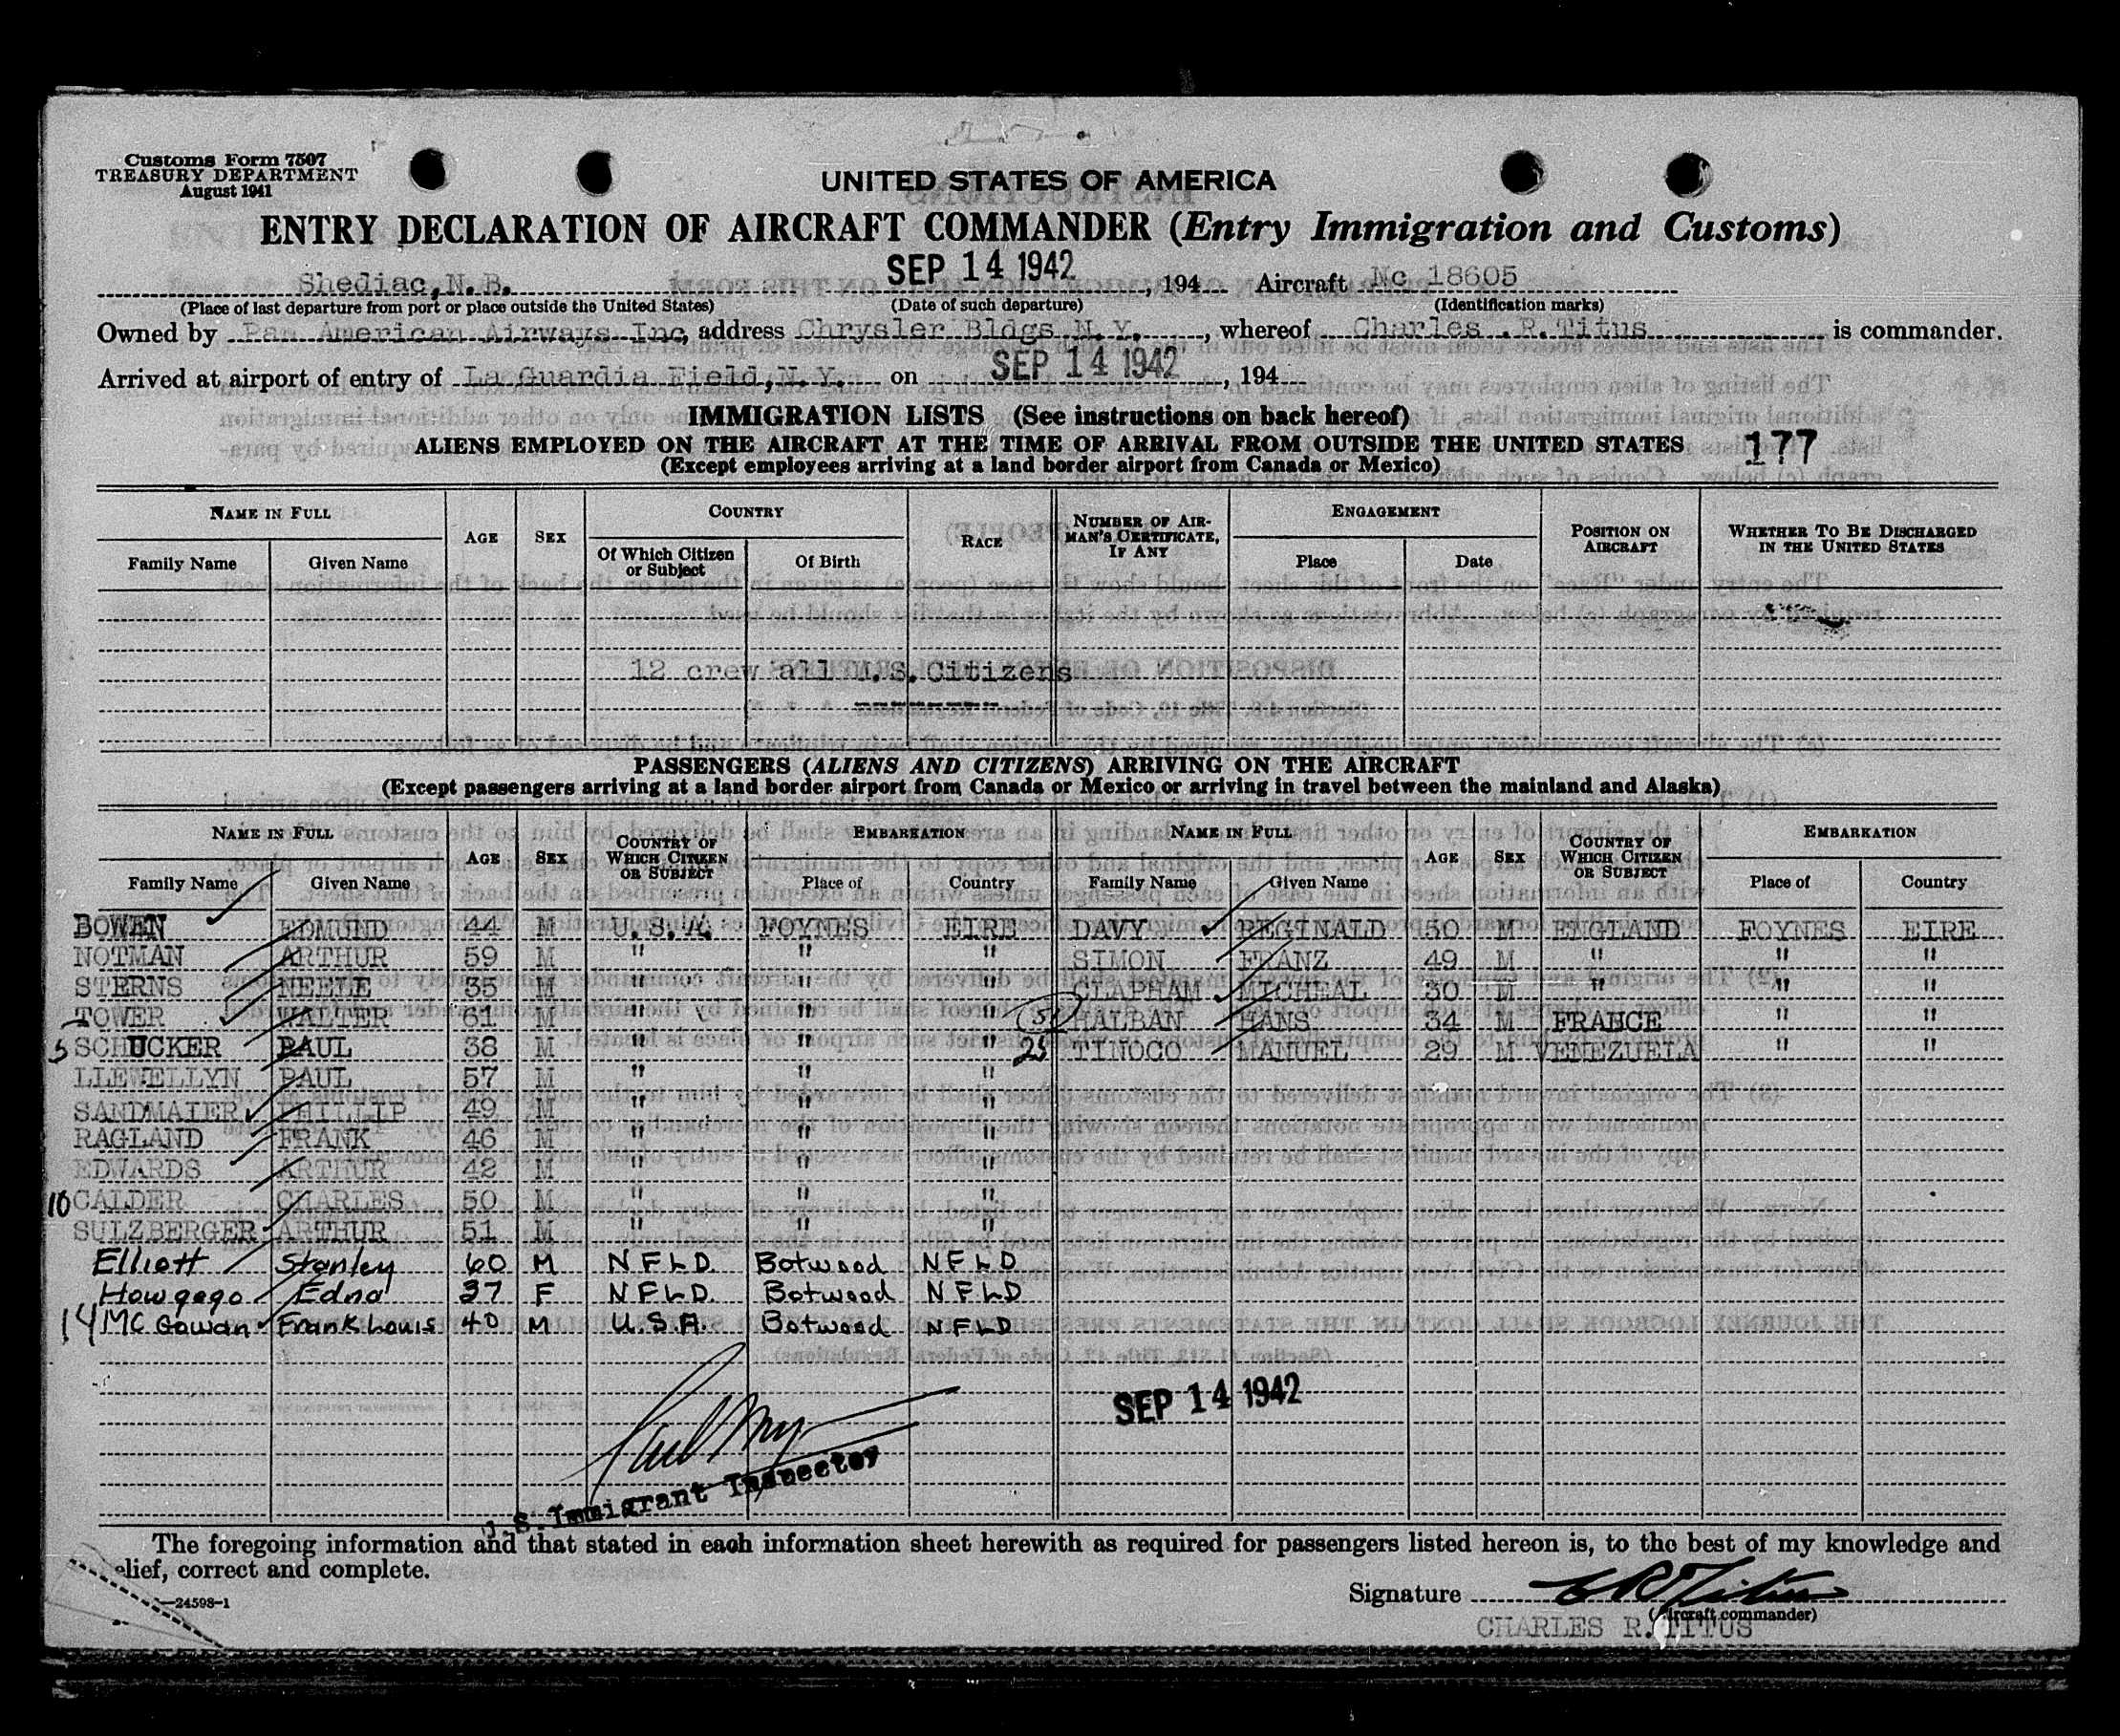 Customs Form 7507
TREASURY DEPARTMENT
August 1941
UNITED STATES OF AMERICA
ENTRY DECLARATION OF AIRCRAFT COMMANDER (Entry Immigration and Customs)
Shediac,N.B. SEP 14 1942, 194 Aircraft Nc 18605
(Place of last departure from port or place outside the United States) (Date of such departure) (Identification marks)
Owned by Pan American Airways Inc, address Chrysler Bldgs N.Y., whereof Charles .R.Titus is commander.
Arrived at airport of entry of La Guardia Field,N.Y. on SEP 14 1942, 194
IMMIGRATION LISTS (See instructions on back hereof)
ALIENS EMPLOYED ON THE AIRCRAFT AT THE TIME OF ARRIVAL FROM OUTSIDE THE UNITED STATES 177
(Except employees arriving at a land border airport from Canada or Mexico)
NAME IN FULL AGE SEX COUNTRY RACE NUMBER OF AIRMAN'S CERTIFICATE, IF ANY ENGAGEMENT POSITION ON AIRCRAFT WHETHER TO BE DISCHARGED IN THE UNITED STATES
Family Name Given Name Of Which Citizen or Subject Of Birth Place Date
12 crew all U.S.Citizens
PASSENGERS (ALIENS AND CITIZENS) ARRIVING ON THE AIRCRAFT
(Except passengers arriving at a land border airport from Canada or Mexico or arriving in travel between the mainland and Alaska)
NAME IN FULL AGE SEX COUNTRY OF WHICH CITIZEN OR SUBJECT EMBARKATION NAME IN FULL AGE SEX COUNTRY OF WHICH CITIZEN OR SUBJECT EMBARKATION
Family Name Given Name Place of Country Family Name Given Name Place of Country
BOWEN EDMUND 44 M U.S.A. FOYNES EIRE DAVY REGINALD 50 M ENGLAND FOYNES EIRE
NOTMAN ARTHUR 59 M " " " SIMON FRANZ 49 M " " "
STERNS NEELE 35 M " " " CLAPHAM MICHEAL 30 M " " "
TOWER WALTER 61 M " " " HALBAN HANS 34 M FRANCE " "
5 SCHUCKER PAUL 38 M " " " 25 TINOCO MANUEL 29 M VENEZUELA " "
LLEWELLYN PAUL 57 M " " "
SANDMAIER PHILLIP 49 M " " "
RAGLAND FRANK 46 M " " "
EDWARDS ARTHUR 42 M " " "
10 CALDER CHARLES 50 M " " "
SULZBERGER ARTHUR 51 M " " "
Elliott Stanley 60 M NFLD. Botwood NFLD
Howgego Edna 37 F NFLD. Botwood NFLD
14 Mc Gowan Frank Louis 40 M U.S.A. Botwood NFLD
SEP 14 1942
U.S. Immigrant Inspector
The foregoing information and that stated in each information sheet herewith as required for passengers listed hereon is, to the best of my knowledge and
elief, correct and complete.
—24598-1
Signature C R Titus
(Aircraft commander)
CHARLES R.TITUS